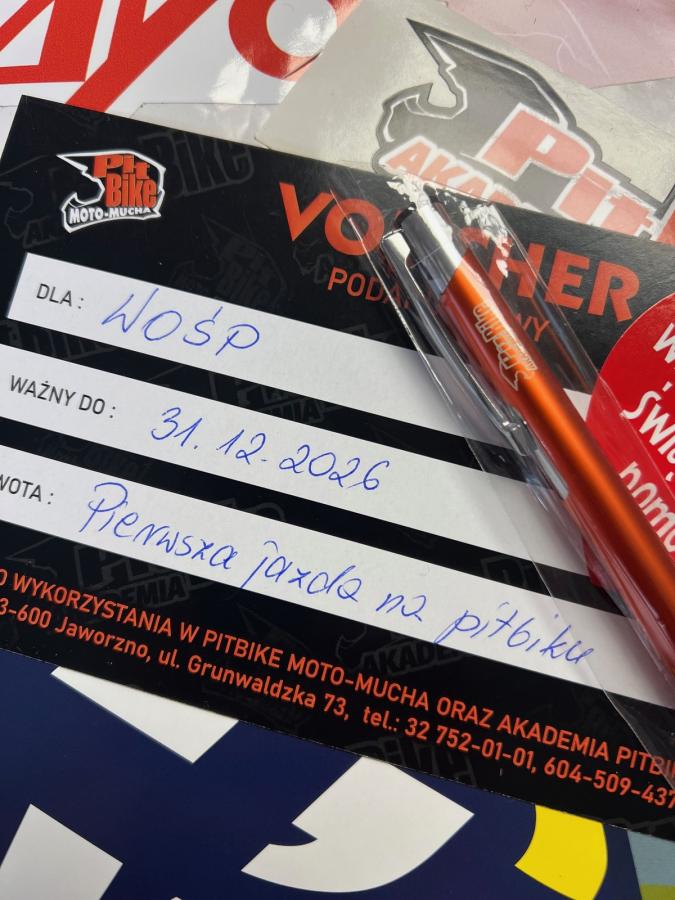 Pit
AKADE
Pit
Bike
MOTO-MUCHA
VOUCHER
DLA: WOŚP
WAŻNY DO: 31.12.2026
WOTA: Pierwsza jazda na pitbiku
O WYKORZYSTANIA W PITBIKE MOTO-MUCHA ORAZ AKADEMIA PITBIK
3-600 Jaworzno, ul. Grunwaldzka 73, tel.: 32 752-01-01, 604-509-437